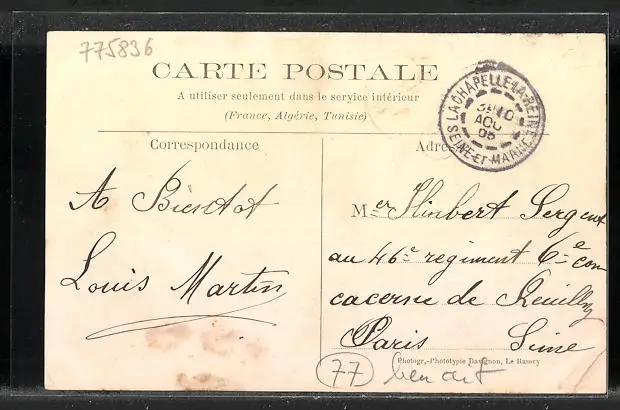 775836
CARTE POSTALE
A utiliser seulement dans le service intérieur
(France, Algérie, Tunisie)
Correspondance
A Bientot
Louis Martin
Adre
LA CHAPELLE-LA-REINE
AOU
05
SEINE-ET-MARNE
Mer Himbert Sergent
au 46e regiment 6e
cacerne de Reuilly
Paris Seine
Photogr.-Phototypie Davignon, Le Raincy
77